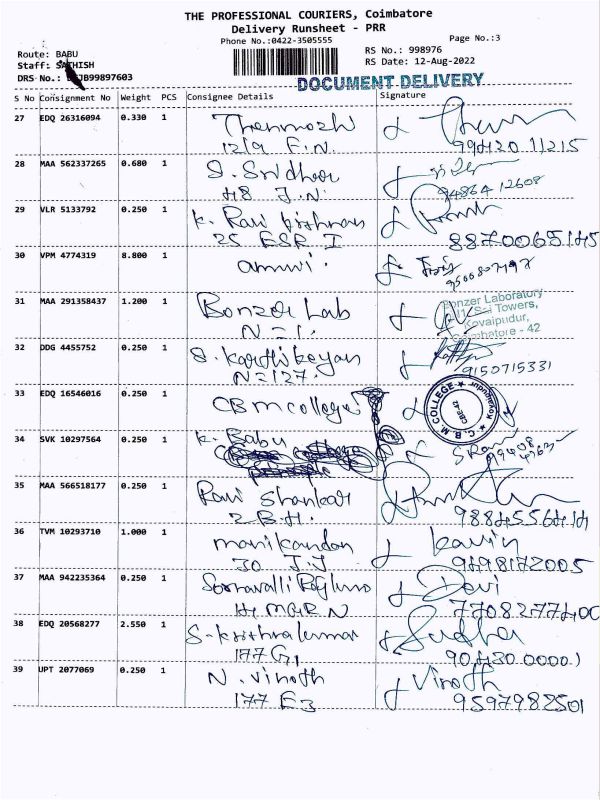 THE PROFESSIONAL COURIERS, Coimbatore
Delivery Runsheet - PRR
Phone No.:0422-3505555
Page No.:3
Route: BABU
RS No.: 998976
Staff: SATHISH
RS Date: 12-Aug-2022
DRS No.:
DOCUMENT DELIVERY
S No Consignment No Weight PCS Consignee Details Signature
27 EDQ 26316094 0.330 1 Thenmozhi
12/9 F.N. 99420 11215
28 MAA 562337265 0.680 1 S. Sridhar
48 J.N. 94864 12608
29 VLR 5133792 0.250 1 K. Ravi Krishnan
25 ESR I 8870065145
30 VPM 4774319 8.800 1
31 MAA 291358437 1.200 1 Bonzer Lab
N=1. Bonzer Laboratory
Sai Towers,
Kovaipudur,
Coimbatore - 42
32 DDG 4455752 0.250 1 S. Karthikeyan
N=127. 9150715331
33 EDQ 16546016 0.250 1 CBM College
C.B.M. COLLEGE ★ Kovaipudur ★
CBE-42
34 SVK 10297564 0.250 1 K. Babu
35 MAA 566518177 0.250 1 Ravi Shankar
2 B.H. 9884556414
36 TVM 10293710 1.000 1 Manikandan Kavin
30 J.J 9698172005
37 MAA 942235364 0.250 1 Devi
14 MGR N 7708277400
38 EDQ 20568277 2.550 1 S. Krishnakumar Sudha
177 G1 90430 00001
39 UPT 2077069 0.250 1 N. Vinoth Vinoth
177 E3 9597982501